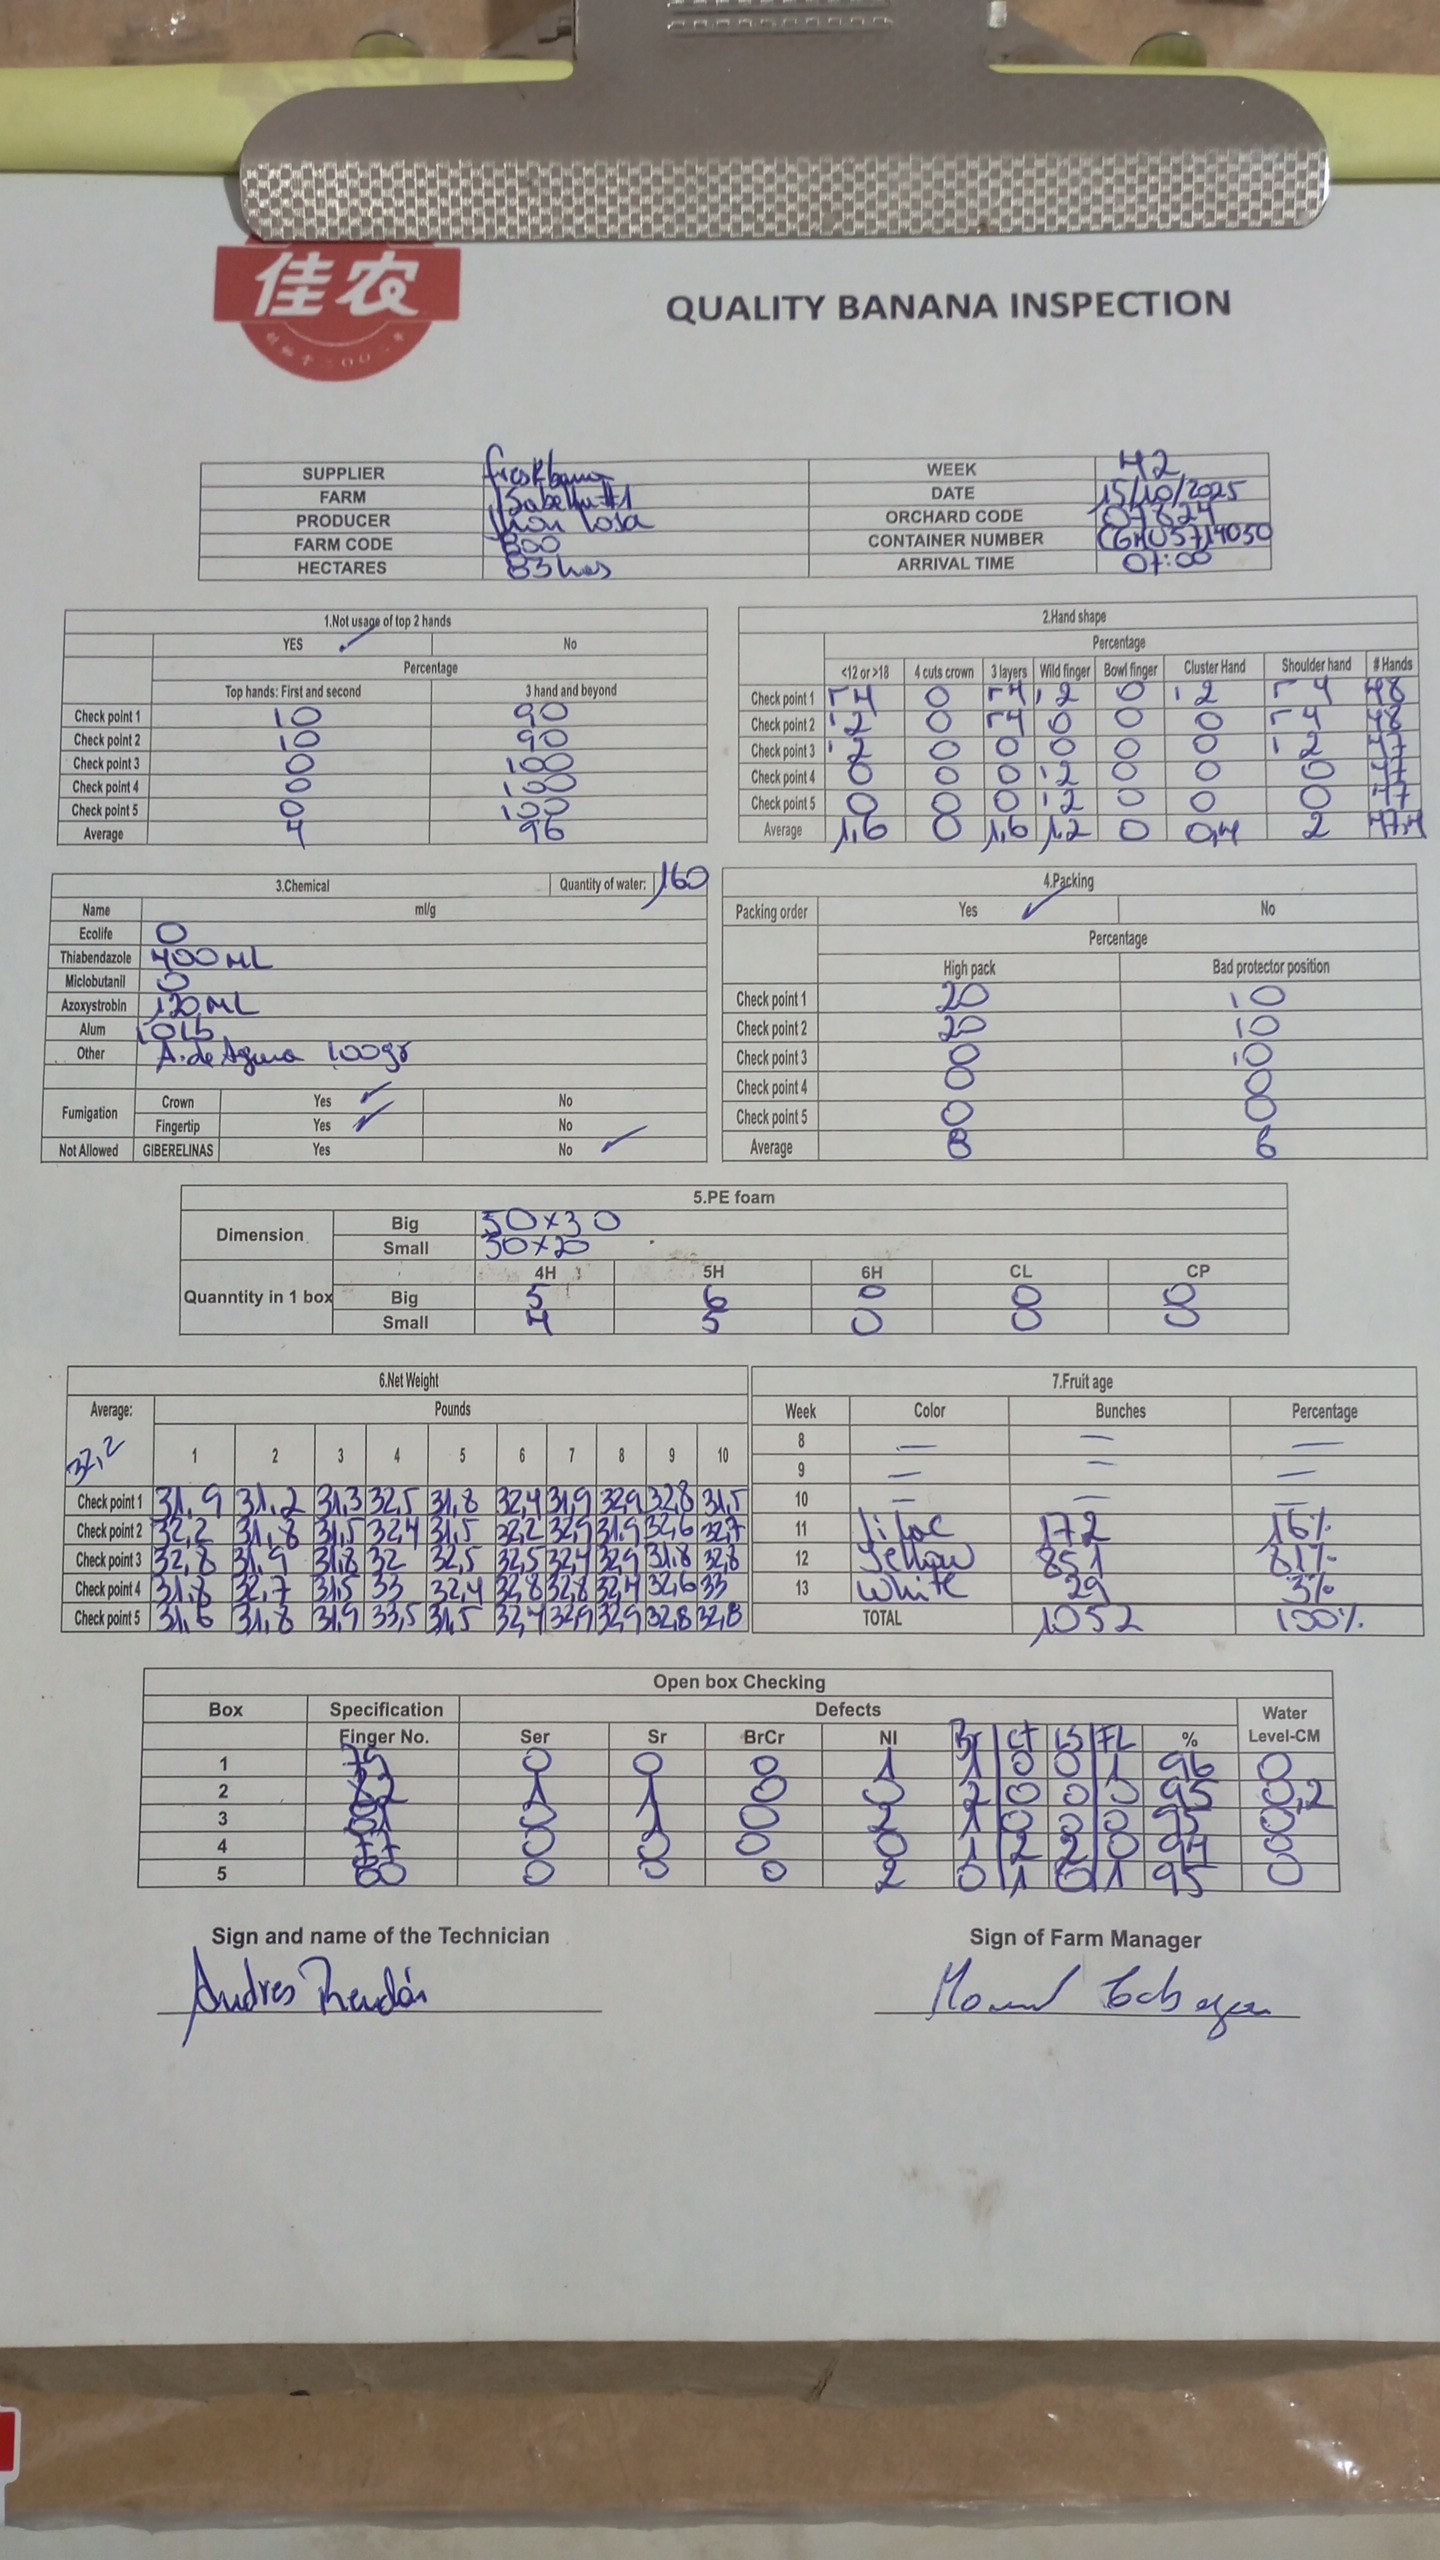 佳农
QUALITY BANANA INSPECTION
SUPPLIER freskbana WEEK 42
FARM Isabella #1 DATE 15/10/2025
PRODUCER Jhon Loja ORCHARD CODE 07824
FARM CODE 800 CONTAINER NUMBER CGMU5714030
HECTARES 83 has ARRIVAL TIME 07:00
1.Not usage of top 2 hands
YES ✓ No
Percentage
Top hands: First and second 3 hand and beyond
Check point 1 10 90
Check point 2 10 90
Check point 3 0 100
Check point 4 0 100
Check point 5 0 100
Average 4 96
2.Hand shape
Percentage
<12 or >18 4 cuts crown 3 layers Wild finger Bowl finger Cluster Hand Shoulder hand # Hands
Check point 1 4 0 4 2 0 2 4 48
Check point 2 2 0 4 0 0 0 4 48
Check point 3 2 0 0 0 0 0 2 47
Check point 4 0 0 0 2 0 0 0 47
Check point 5 0 0 0 2 0 0 0 47
Average 1,6 0 1,6 1,2 0 0,4 2 47,4
3.Chemical Quantity of water: 160
Name ml/g
Ecolife 0
Thiabendazole 400 mL
Miclobutanil 0
Azoxystrobin 120 mL
Alum 10 Lb
Other A. de Agua 100gr
Fumigation Crown Yes ✓ No
Fingertip Yes ✓ No
Not Allowed GIBERELINAS Yes No ✓
4.Packing
Packing order Yes ✓ No
Percentage
High pack Bad protector position
Check point 1 20 10
Check point 2 20 10
Check point 3 0 10
Check point 4 0 0
Check point 5 0 0
Average 8 6
5.PE foam
Dimension Big 50x30
Small 30x20
4H 5H 6H CL CP
Quanntity in 1 box Big 5 6 0 0 0
Small 4 5 0 0 0
6.Net Weight
Average: Pounds
32,2 1 2 3 4 5 6 7 8 9 10
Check point 1 31,9 31,2 31,3 32,5 31,8 32,4 31,9 32,9 32,8 31,5
Check point 2 32,2 31,8 31,5 32,4 31,5 32,2 32,9 31,9 32,6 32,7
Check point 3 32,8 31,9 31,8 32 32,5 32,5 32,4 32,9 31,8 32,8
Check point 4 31,8 32,7 31,5 33 32,4 32,8 32,8 32,4 32,6 33
Check point 5 31,6 31,8 31,9 33,5 31,5 32,4 32,9 32,9 32,8 32,8
7.Fruit age
Week Color Bunches Percentage
8 — — —
9 — — —
10 — — —
11 Lilac 172 16%
12 Yellow 851 81%
13 White 29 3%
TOTAL 1052 100%
Open box Checking
Box Specification Defects Water
Finger No. Ser Sr BrCr NI Br Ct LS FL % Level-CM
1 79 0 0 0 1 1 0 0 1 96 0
2 82 1 1 0 0 2 0 0 0 95 0,2
3 81 0 1 0 2 1 0 0 0 95 0
4 77 0 0 0 0 1 2 2 0 94 0
5 80 0 0 0 2 0 1 0 1 95 0
Sign and name of the Technician Sign of Farm Manager
Andres Rendón